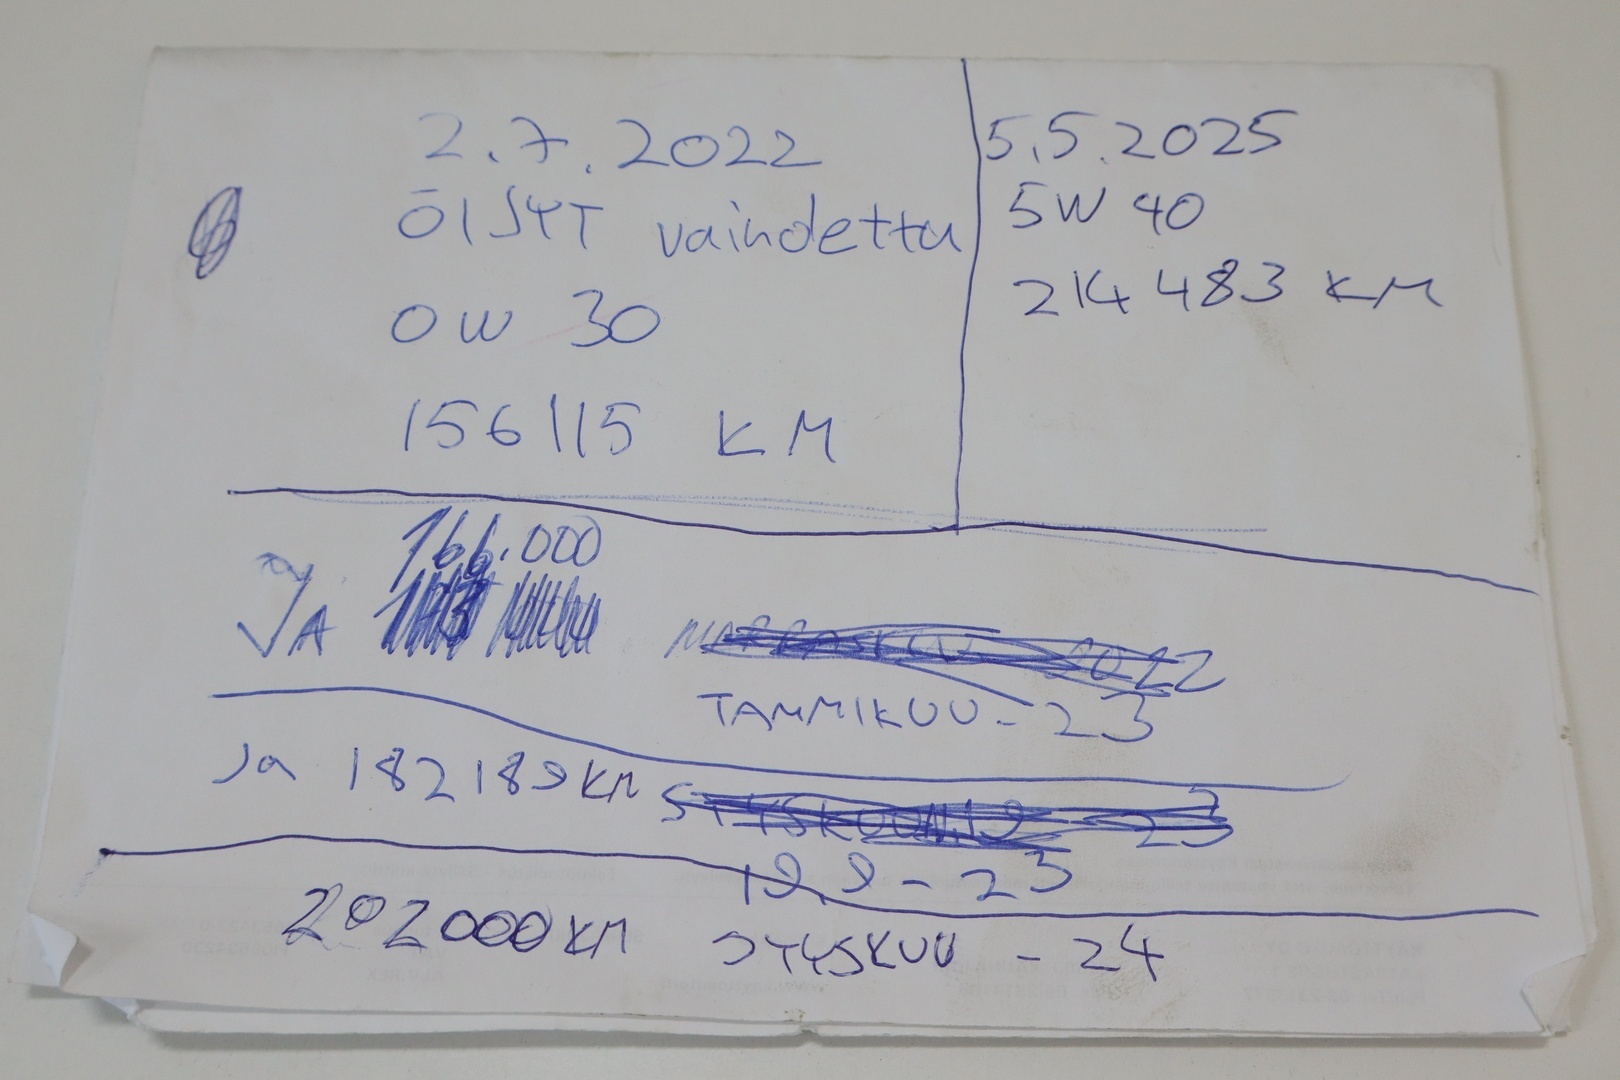 2.7.2022
ÖlJYT vaihdettu
0W 30
156115 KM
5.5.2025
5W 40
214 483 KM
166.000
JA
MARRASKUU 2022
TAMMIKUU - 23
Ja 182189 KM
SYYSKUU
23
19.9 - 23
202000 KM SYYSKUU - 24